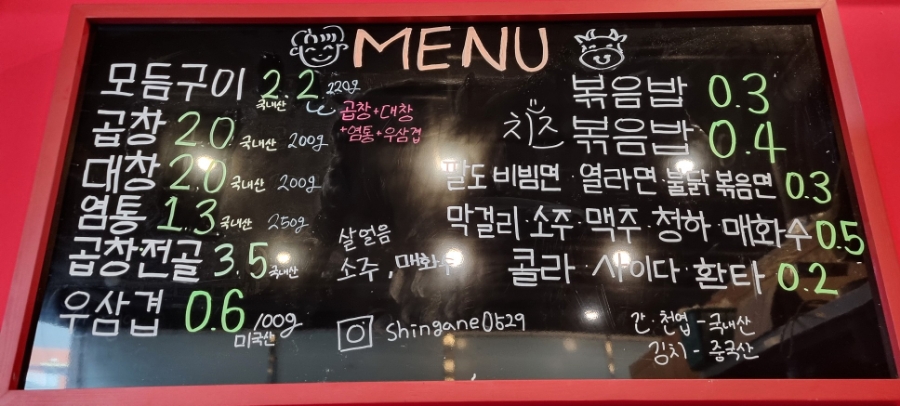 MENU
모듬구이 2.2 국내산 220g
곱창+대창
+염통+우삼겹
곱창 2.0 국내산 200g
대창 2.0 국내산 200g
염통 1.3 국내산 250g
곱창전골 3.5 국내산
우삼겹 0.6 /100g
미국산
살얼음
소주, 매화수
shingane0529
볶음밥 0.3
치즈 볶음밥 0.4
팔도비빔면·열라면·불닭볶음면 0.3
막걸리·소주·맥주·청하·매화수 0.5
콜라·사이다·환타 0.2
간·천엽-국내산
김치-중국산